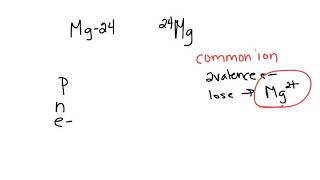 Mg-24 ²⁴Mg
common ion
2 valence e-
lose → Mg²⁺
p
n
e-